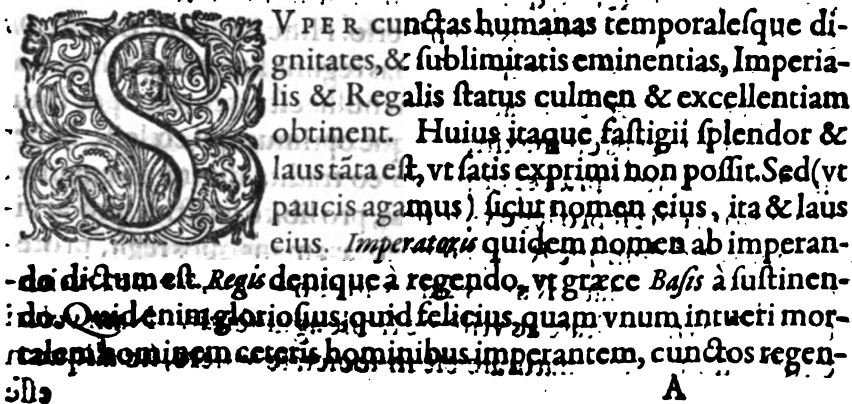 SVPER cunctas humanas temporalesque di-
gnitates, & ſublimitatis eminentias, Imperia-
lis & Regalis ſtatus culmen & excellentiam
obtinent. Huius itaque faſtigii ſplendor &
laus tãta eſt, vt ſatis exprimi non poſſit. Sed (vt
paucis agamus) ſicut nomen eius, ita & laus
eius. Imperatoris quidem nomen ab imperan-
do dictum eſt. Regis denique à regendo, vt græce Baſis à ſuſtinen-
do. Quid enim glorioſius, quid felicius, quam vnum intueri mor-
talem hominem ceteris hominibus imperantem, cunctos regen-
A